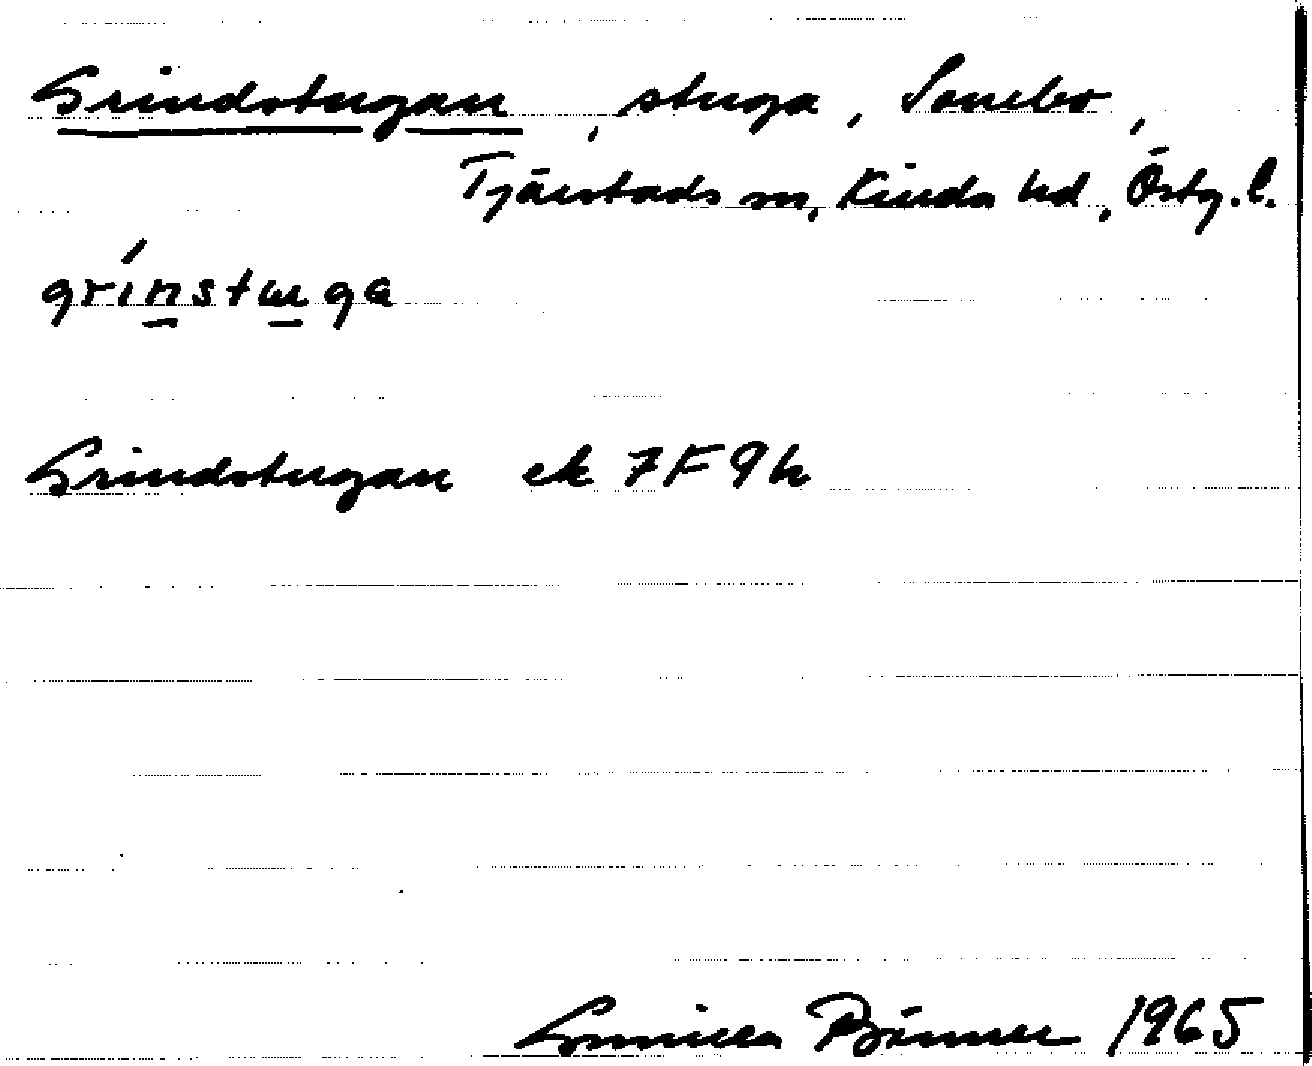 Grindstugan, stuga, Sonebo,
Tjärstads sn, Kinda hd, Östg. l.
grinstuga
Grindstugan ek 7F9h
Gunilla 1965